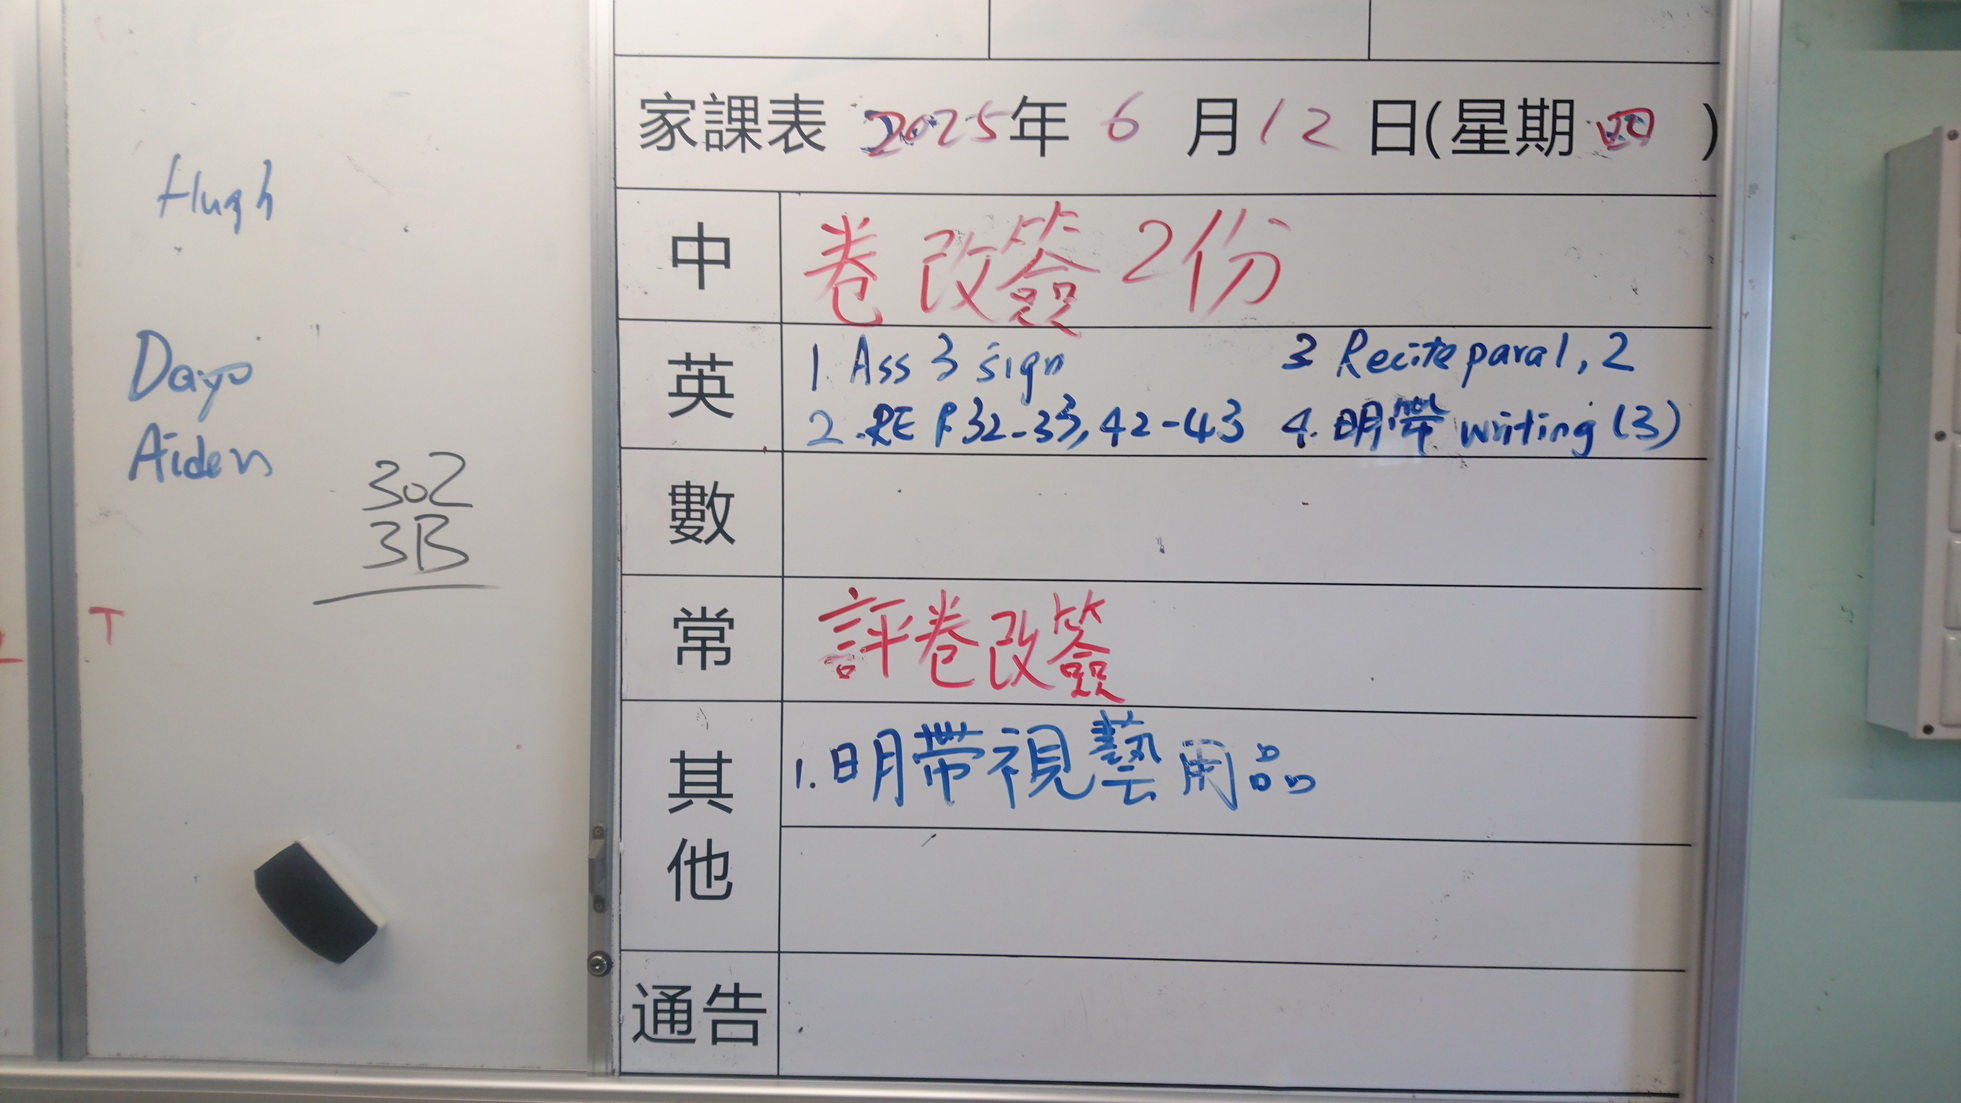 Hugh
Dayo
Aiden
302
3B
T
家課表 2025年 6 月 12 日(星期四)
中
卷改簽2份
英
1. Ass 3 sign
2. RE P.32-33, 42-43
3 Recite para 1, 2
4. 明帶 writing (3)
數
常
評卷改簽
其他
1. 明帶視藝用品
通告